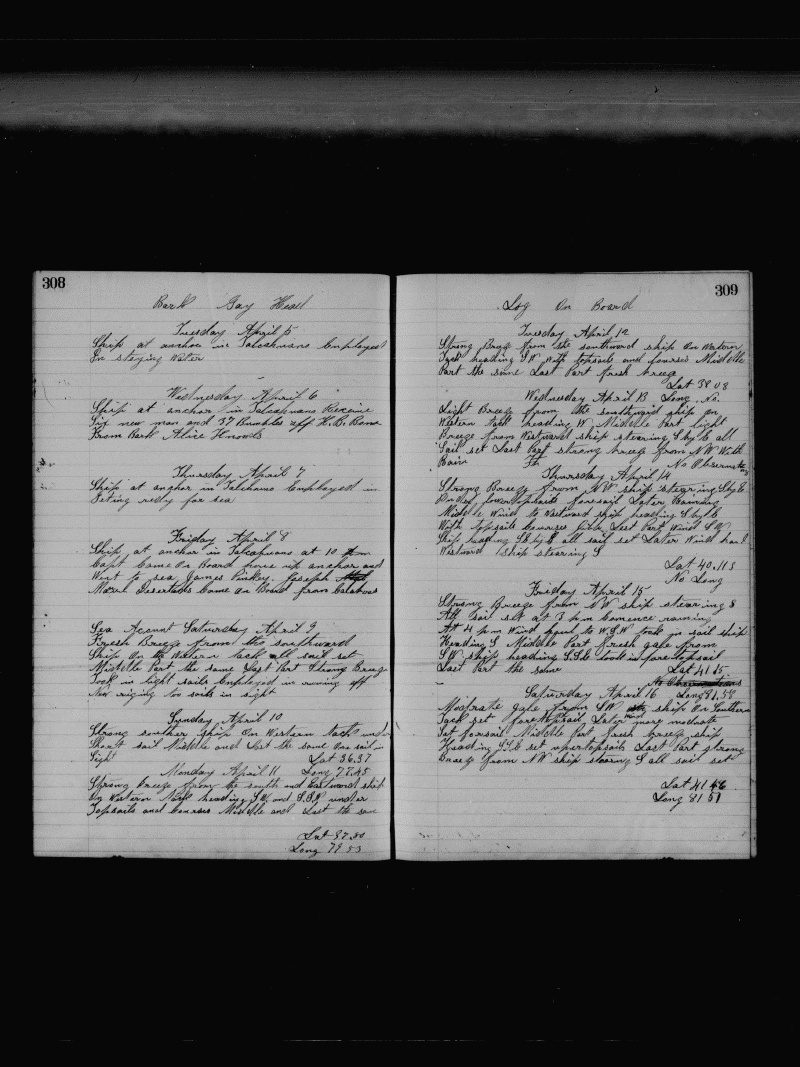 308
Bark Gay Head
Tuesday April 5
Ship at anchor in Talcahuano Employed
In staying Water
Wednesday April 6
Ship at anchor in Talcahuano Receive
Six new men and 37 Bundles off H.B. Bone
From Bark Alice Knowls
Thursday April 7
Ship at anchor in Talchano Employed in
Seting redy for sea
Friday April 8
Ship at anchor in Talcahuano at 10 Am
Capt Came On Board hove up anchor and
Went to sea James Joseph
Desertads Came on Board from
Sea Acount Saturday April 9
Fresh Breeze from the southward
Ship On the Western tack all sail set
Middle Part the same Last Part Strong Breeze
Took in light sails Employed in
New riging two sails in sight
Sunday April 10
Strong souther ship On Western tack under
Short sail Middle and Last the same One sail in
Sight Lat 36.37
Monday April 11 Long 77.45
Strong breeze from the south and Eastward ship
On Western tack heading SW and SSW under
Topsails and Courses Middle and Last the same
Lat 37.50
Long 79 53
309
Log On Board
Tuesday April 12
Strong Breeze from the southward ship On Western
Tack heading SW with topsails and Middle
Part the same Last Part fresh breeze
Lat 38 03
Wednesday April 13 Long No.
Light Breeze from the southward ship on
Western tack heading W Middle Part light
Breeze from Westward ship stearing S by E all
Sail set Last Part strong breeze from NW With
Rain No Observations
Thursday April 14
Strong Breeze from NW ship stearing S by E
Under foresail Later
Middle Wind to Westward ship heading S by E
With Topsails Courses Last Part Wind SW
Ship heading all sail set Later Wind haul
Westward ship stearing S
Lat 40.113
No Long
Friday April 15
Strong Breeze from NW ship stearing S
All sail set at 3 pm Comence raining
At 4 pm Wind haul to WSW took in sail ship
Heading S Middle Part fresh gale from
SW ship heading SSE took in fore topsail
Last Part the same Lat 41 15
No Observations
Saturday April 16 Long 81.58
Modrate gale from SW ship On Southern
Tack set foretopsail Later more modrate
Set foresail Middle Part fresh breeze ship
Heading SSE set upertopsails Last Part strong
Breeze from NW ship stearing S all sail set
Lat 41 46
Long 81 51